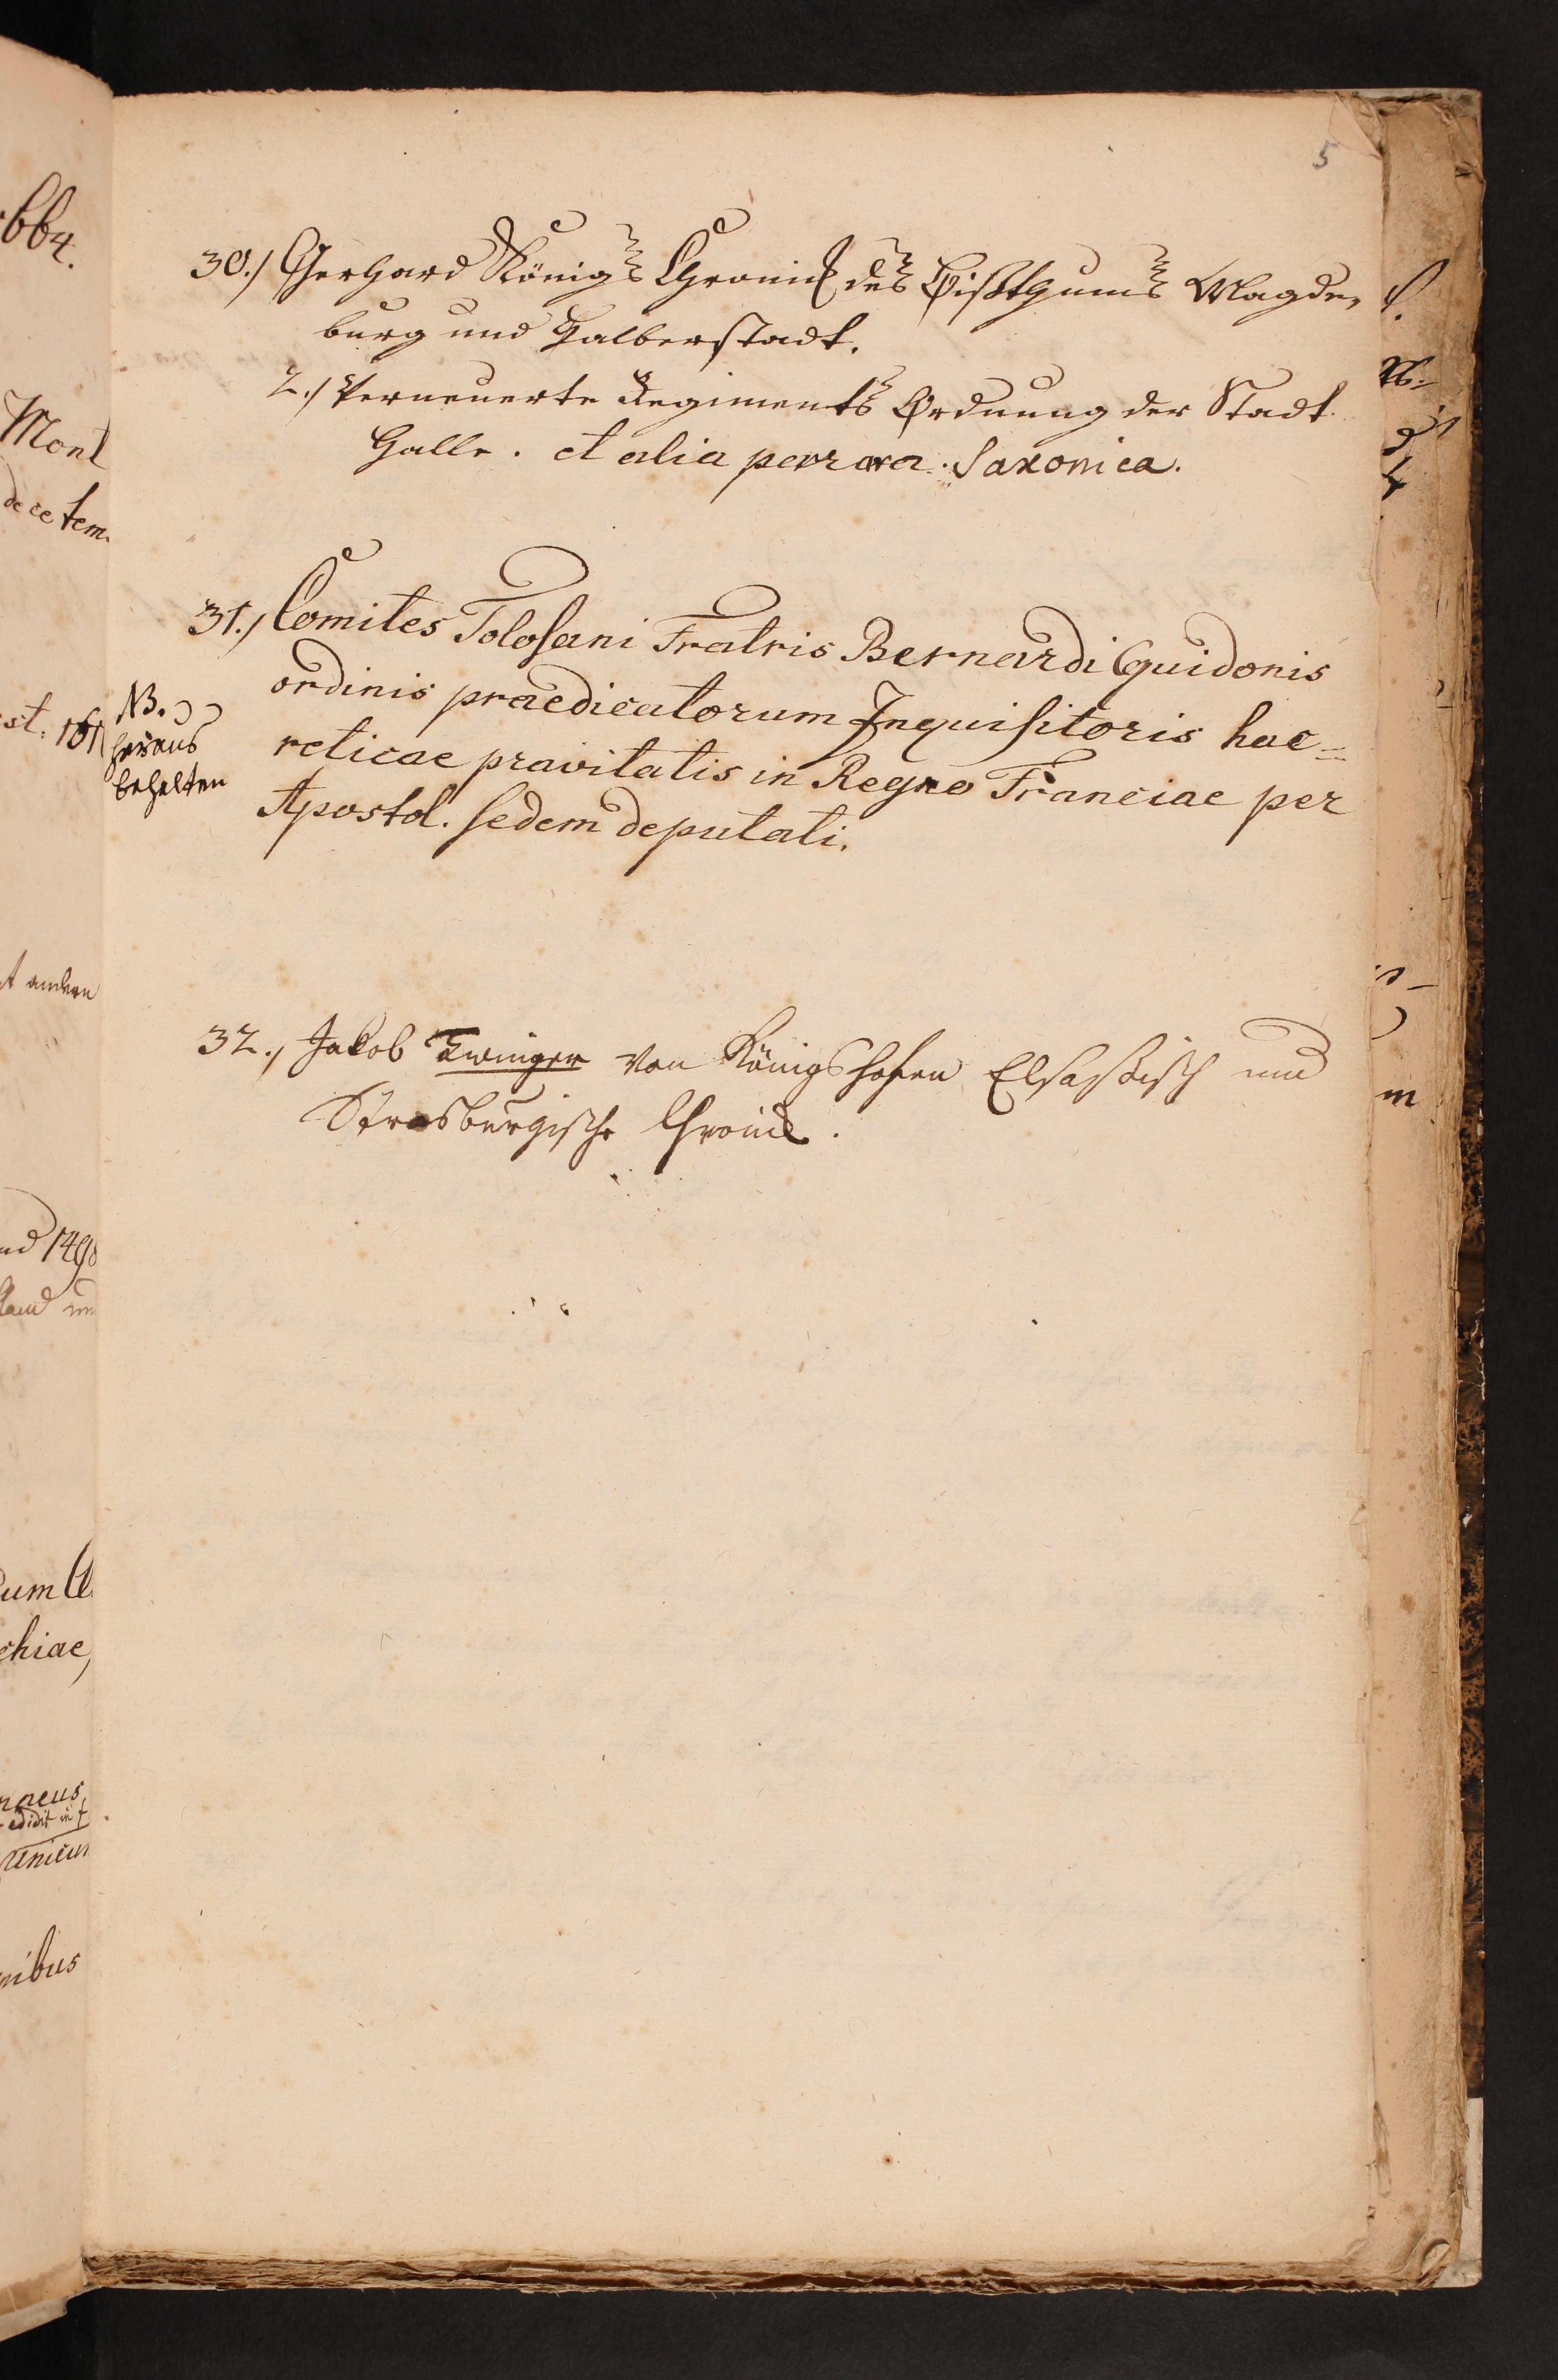 5
30.) Gerhard Königs Chronick des Bißthums Magde„
burg und Halberstadt.
2.) Verneuerte Regiments Ordnung der Stadt
Halle. et alia perrara Saxonica.
31.) Comites Tolosani Fratris Bernardi Guidonis
ordinis praedicatorum Inquisitoris hae=
reticae pravitatis in Regno Franciae per
Apostol. sedem deputati.
NB.
heraus
behalten
32., Jakob Twinger von Königshofen Elsaßisch und
Strasburgische Chronick.